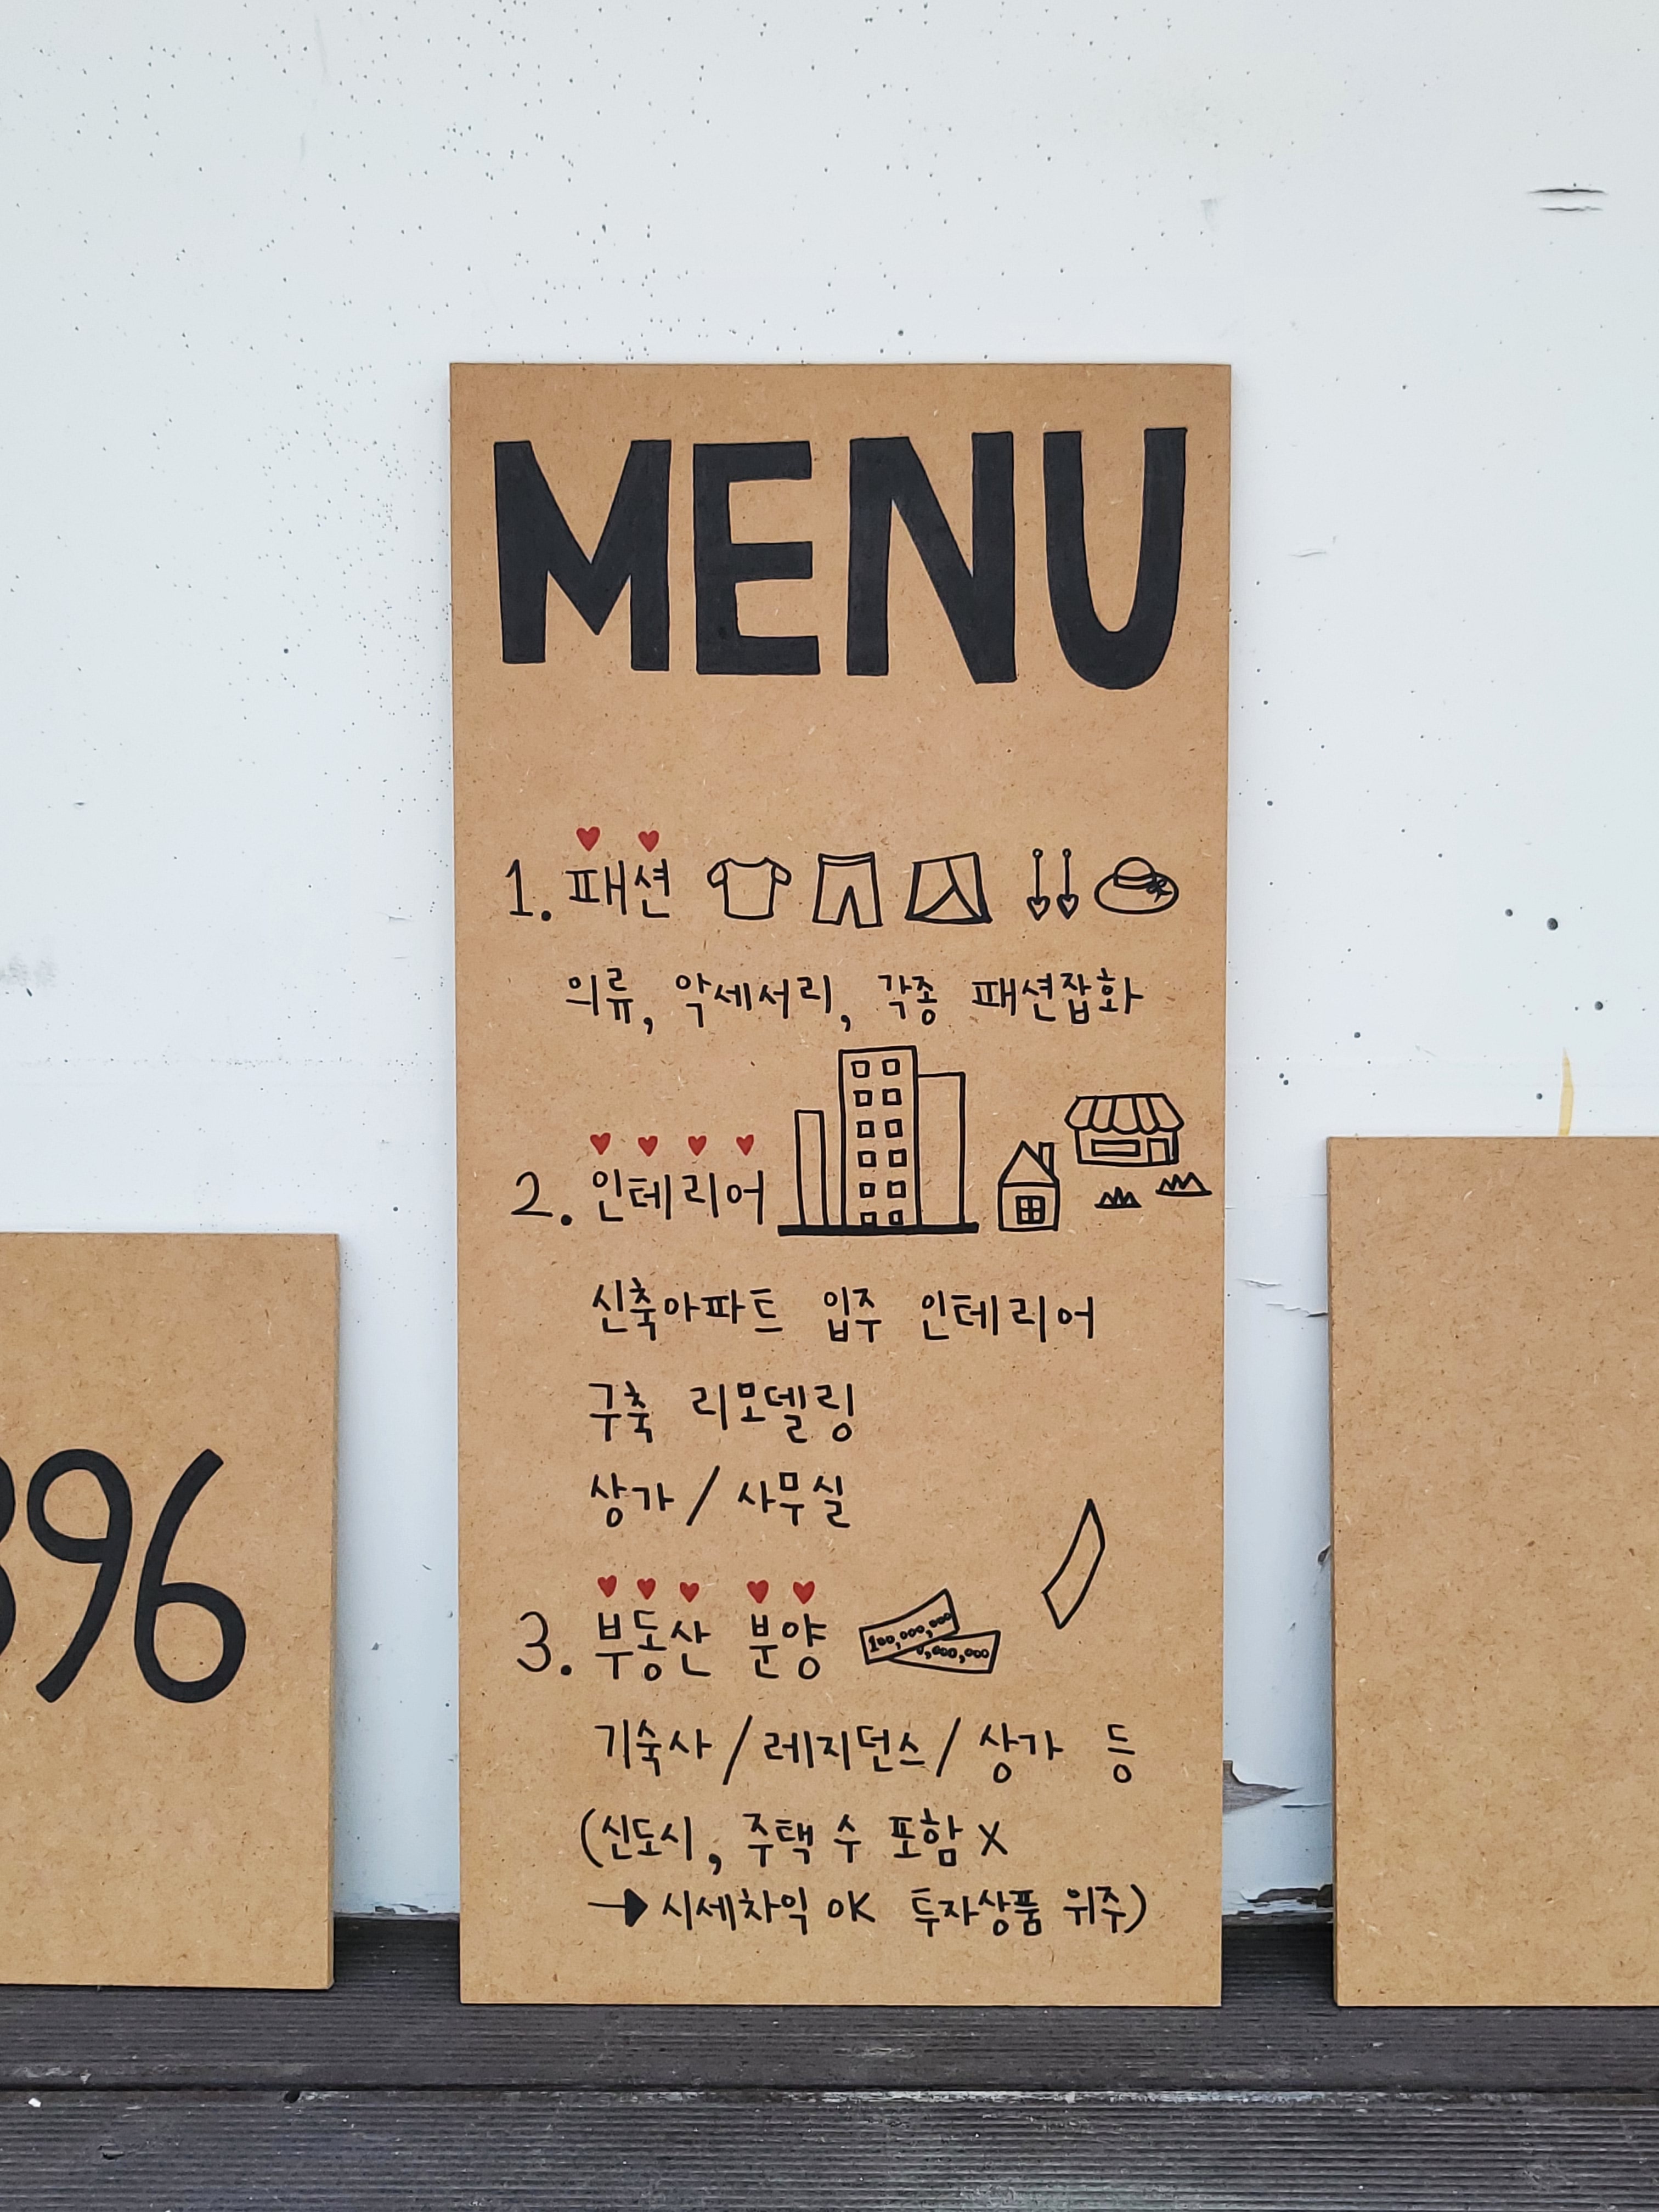 MENU
1. 패션
의류, 악세서리, 각종 패션잡화
2. 인테리어
신축아파트 입주 인테리어
구축 리모델링
상가 / 사무실
3. 부동산 분양
100,000,000
0,000,000
기숙사 / 레지던스 / 상가 등
(신도시, 주택 수 포함 X
→ 시세차익 OK 투자상품 위주)
96